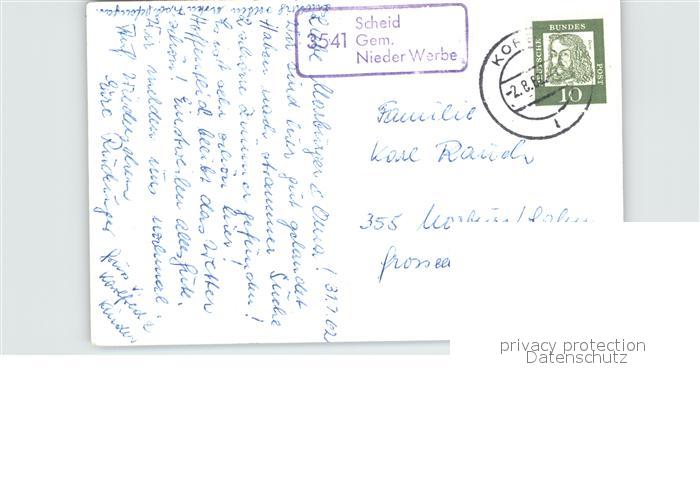 Scheid
3541 Gem.
Nieder Werbe
KOR
-2.8.6
DEUTSCHE BUNDESPOST
10
Familie
Karl Rauch
355 Marburg/Lahn
Grosse
Liebe Marburger & Oma! 31.7.62
Wir sind hier gut gelandet
Haben nach strammer Suche
2 schöne Zimmer gefunden!
Es ist sehr schön hier,
Hoffentlich bleibt das Wetter
schön! Einstweilen alles Gute.
Wir melden uns nochmal.
Auf Wiedersehen
Eure
Kinder
privacy protection
Datenschutz